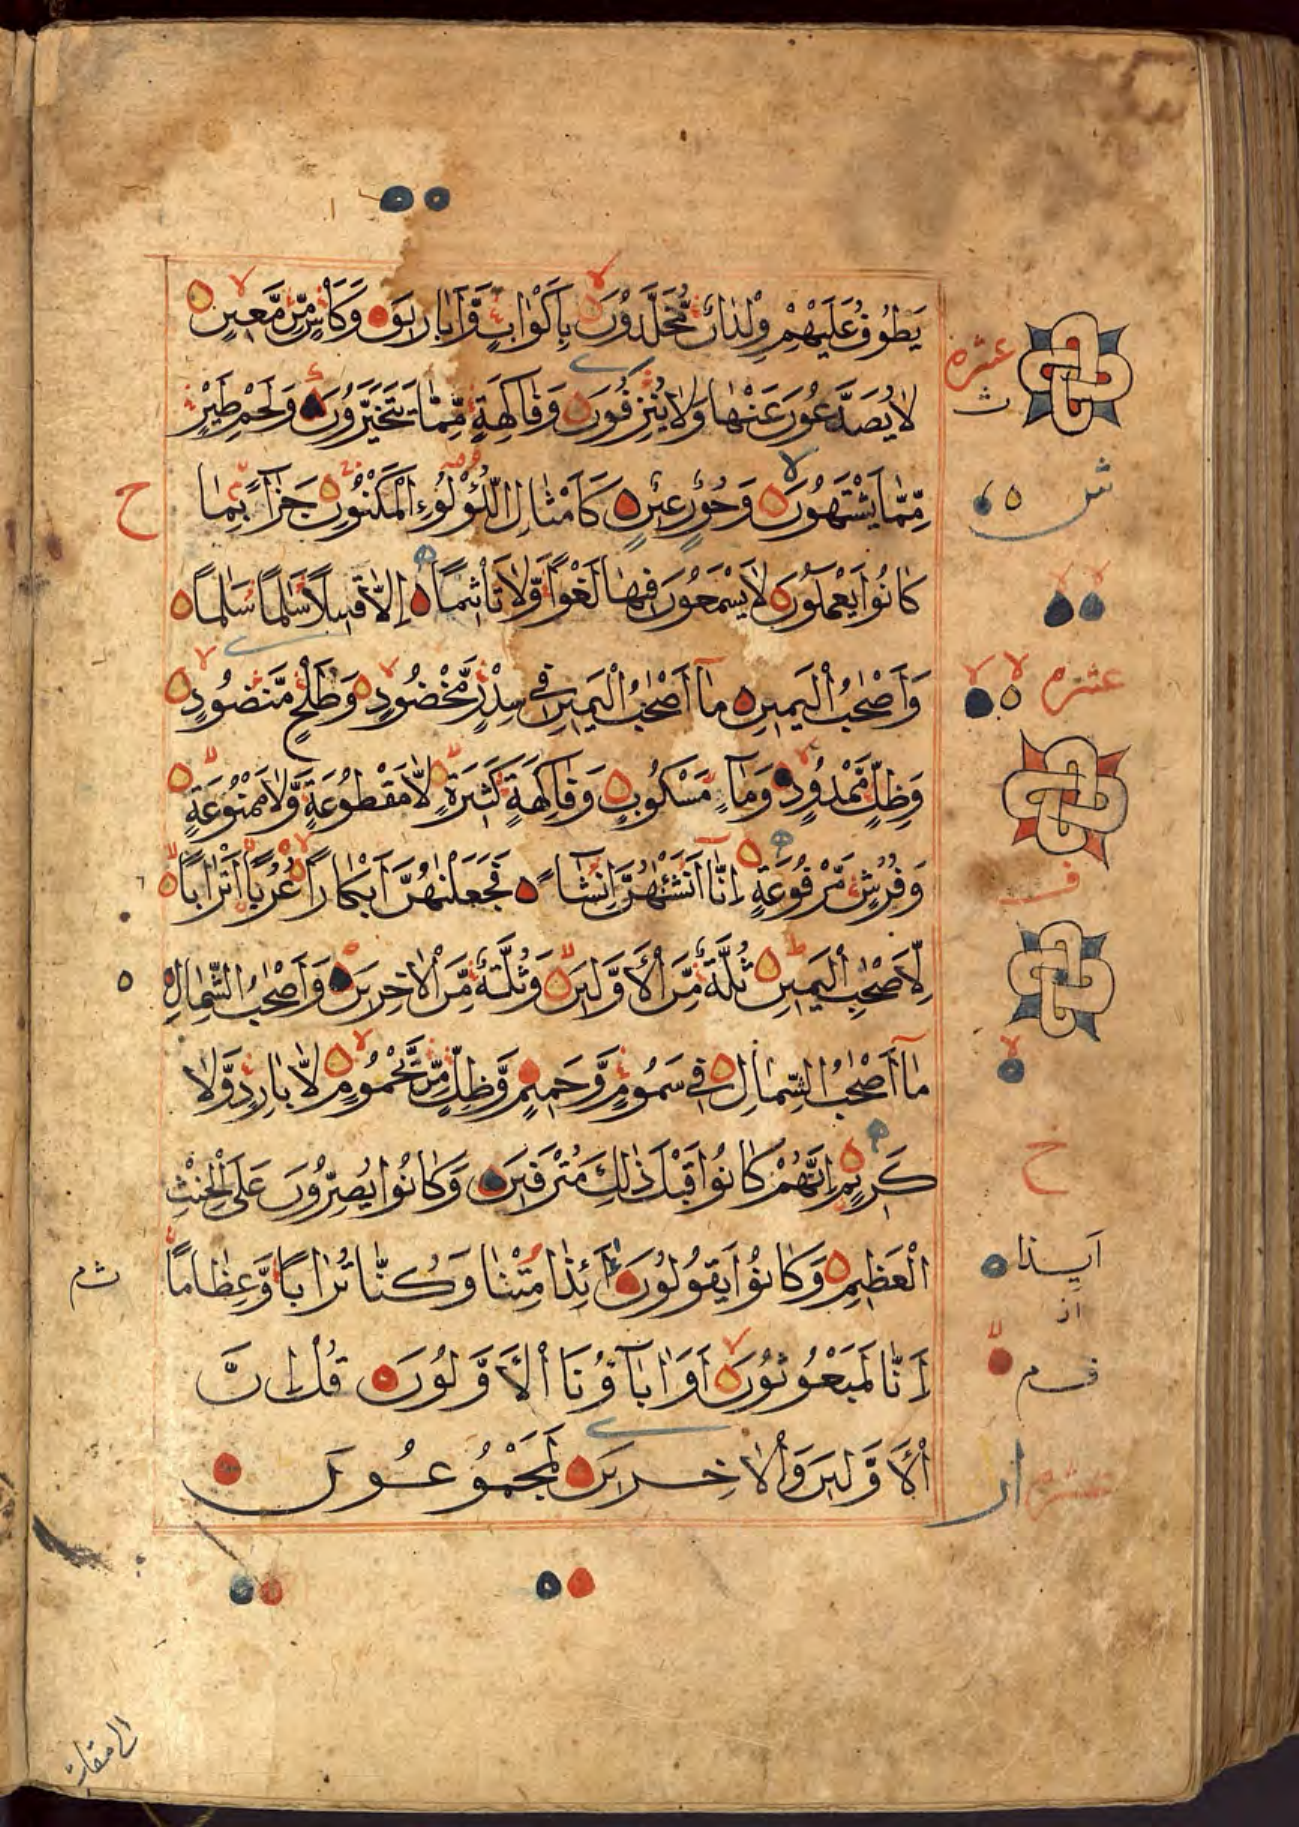 يَطُوفُ عَلَيْهِمْ وِلْدَانٌ مُّخَلَّدُونَ بِأَكْوَابٍ وَّأَبَارِيقَ وَكَأْسٍ مِّن مَّعِينٍ
لَا يُصَدَّعُونَ عَنْهَا وَلَا يُنْزِفُونَ وَفَاكِهَةٍ مِّمَّا يَتَخَيَّرُونَ وَلَحْمِ طَيْرٍ
مِّمَّا يَشْتَهُونَ وَحُورٌ عِينٌ كَأَمْثَالِ اللُّؤْلُؤِ الْمَكْنُونِ جَزَآءً بِمَا
كَانُوا يَعْمَلُونَ لَا يَسْمَعُونَ فِيهَا لَغْوًا وَّلَا تَأْثِيمًا إِلَّا قِيلًا سَلٰمًا سَلٰمًا
وَأَصْحٰبُ الْيَمِينِ مَآ أَصْحٰبُ الْيَمِينِ فِي سِدْرٍ مَّخْضُودٍ وَطَلْحٍ مَّنْضُودٍ
وَظِلٍّ مَّمْدُودٍ وَمَآءٍ مَسْكُوبٍ وَفَاكِهَةٍ كَثِيرَةٍ لَّا مَقْطُوعَةٍ وَّلَا مَمْنُوعَةٍ
وَفُرُشٍ مَّرْفُوعَةٍ إِنَّآ أَنْشَئْنٰهُنَّ إِنْشَآءً فَجَعَلْنٰهُنَّ أَبْكَارًا عُرُبًا أَتْرَابًا
لِّأَصْحٰبِ الْيَمِينِ ثُلَّةٌ مِّنَ الْأَوَّلِينَ وَثُلَّةٌ مِّنَ الْآخِرِينَ وَأَصْحٰبُ الشِّمَالِ
مَآ أَصْحٰبُ الشِّمَالِ فِي سَمُومٍ وَّحَمِيمٍ وَّظِلٍّ مِّن يَّحْمُومٍ لَّا بَارِدٍ وَّلَا
كَرِيمٍ إِنَّهُمْ كَانُوا قَبْلَ ذَالِكَ مُتْرَفِينَ وَكَانُوا يُصِرُّونَ عَلَى الْحِنْثِ
الْعَظِيمِ وَكَانُوا يَقُولُونَ أَئِذَا مِتْنَا وَكُنَّا تُرَابًا وَّعِظَامًا
إَنَّا لَمَبْعُوثُونَ أَوَاٰبَآؤُنَا الْأَوَّلُونَ قُلْ إِنَّ
الْأَوَّلِينَ وَالْآخِرِينَ لَمَجْمُوعُونَ
عشره
ث
ح
عشره
ف
خ
ايذا
قم
عشره